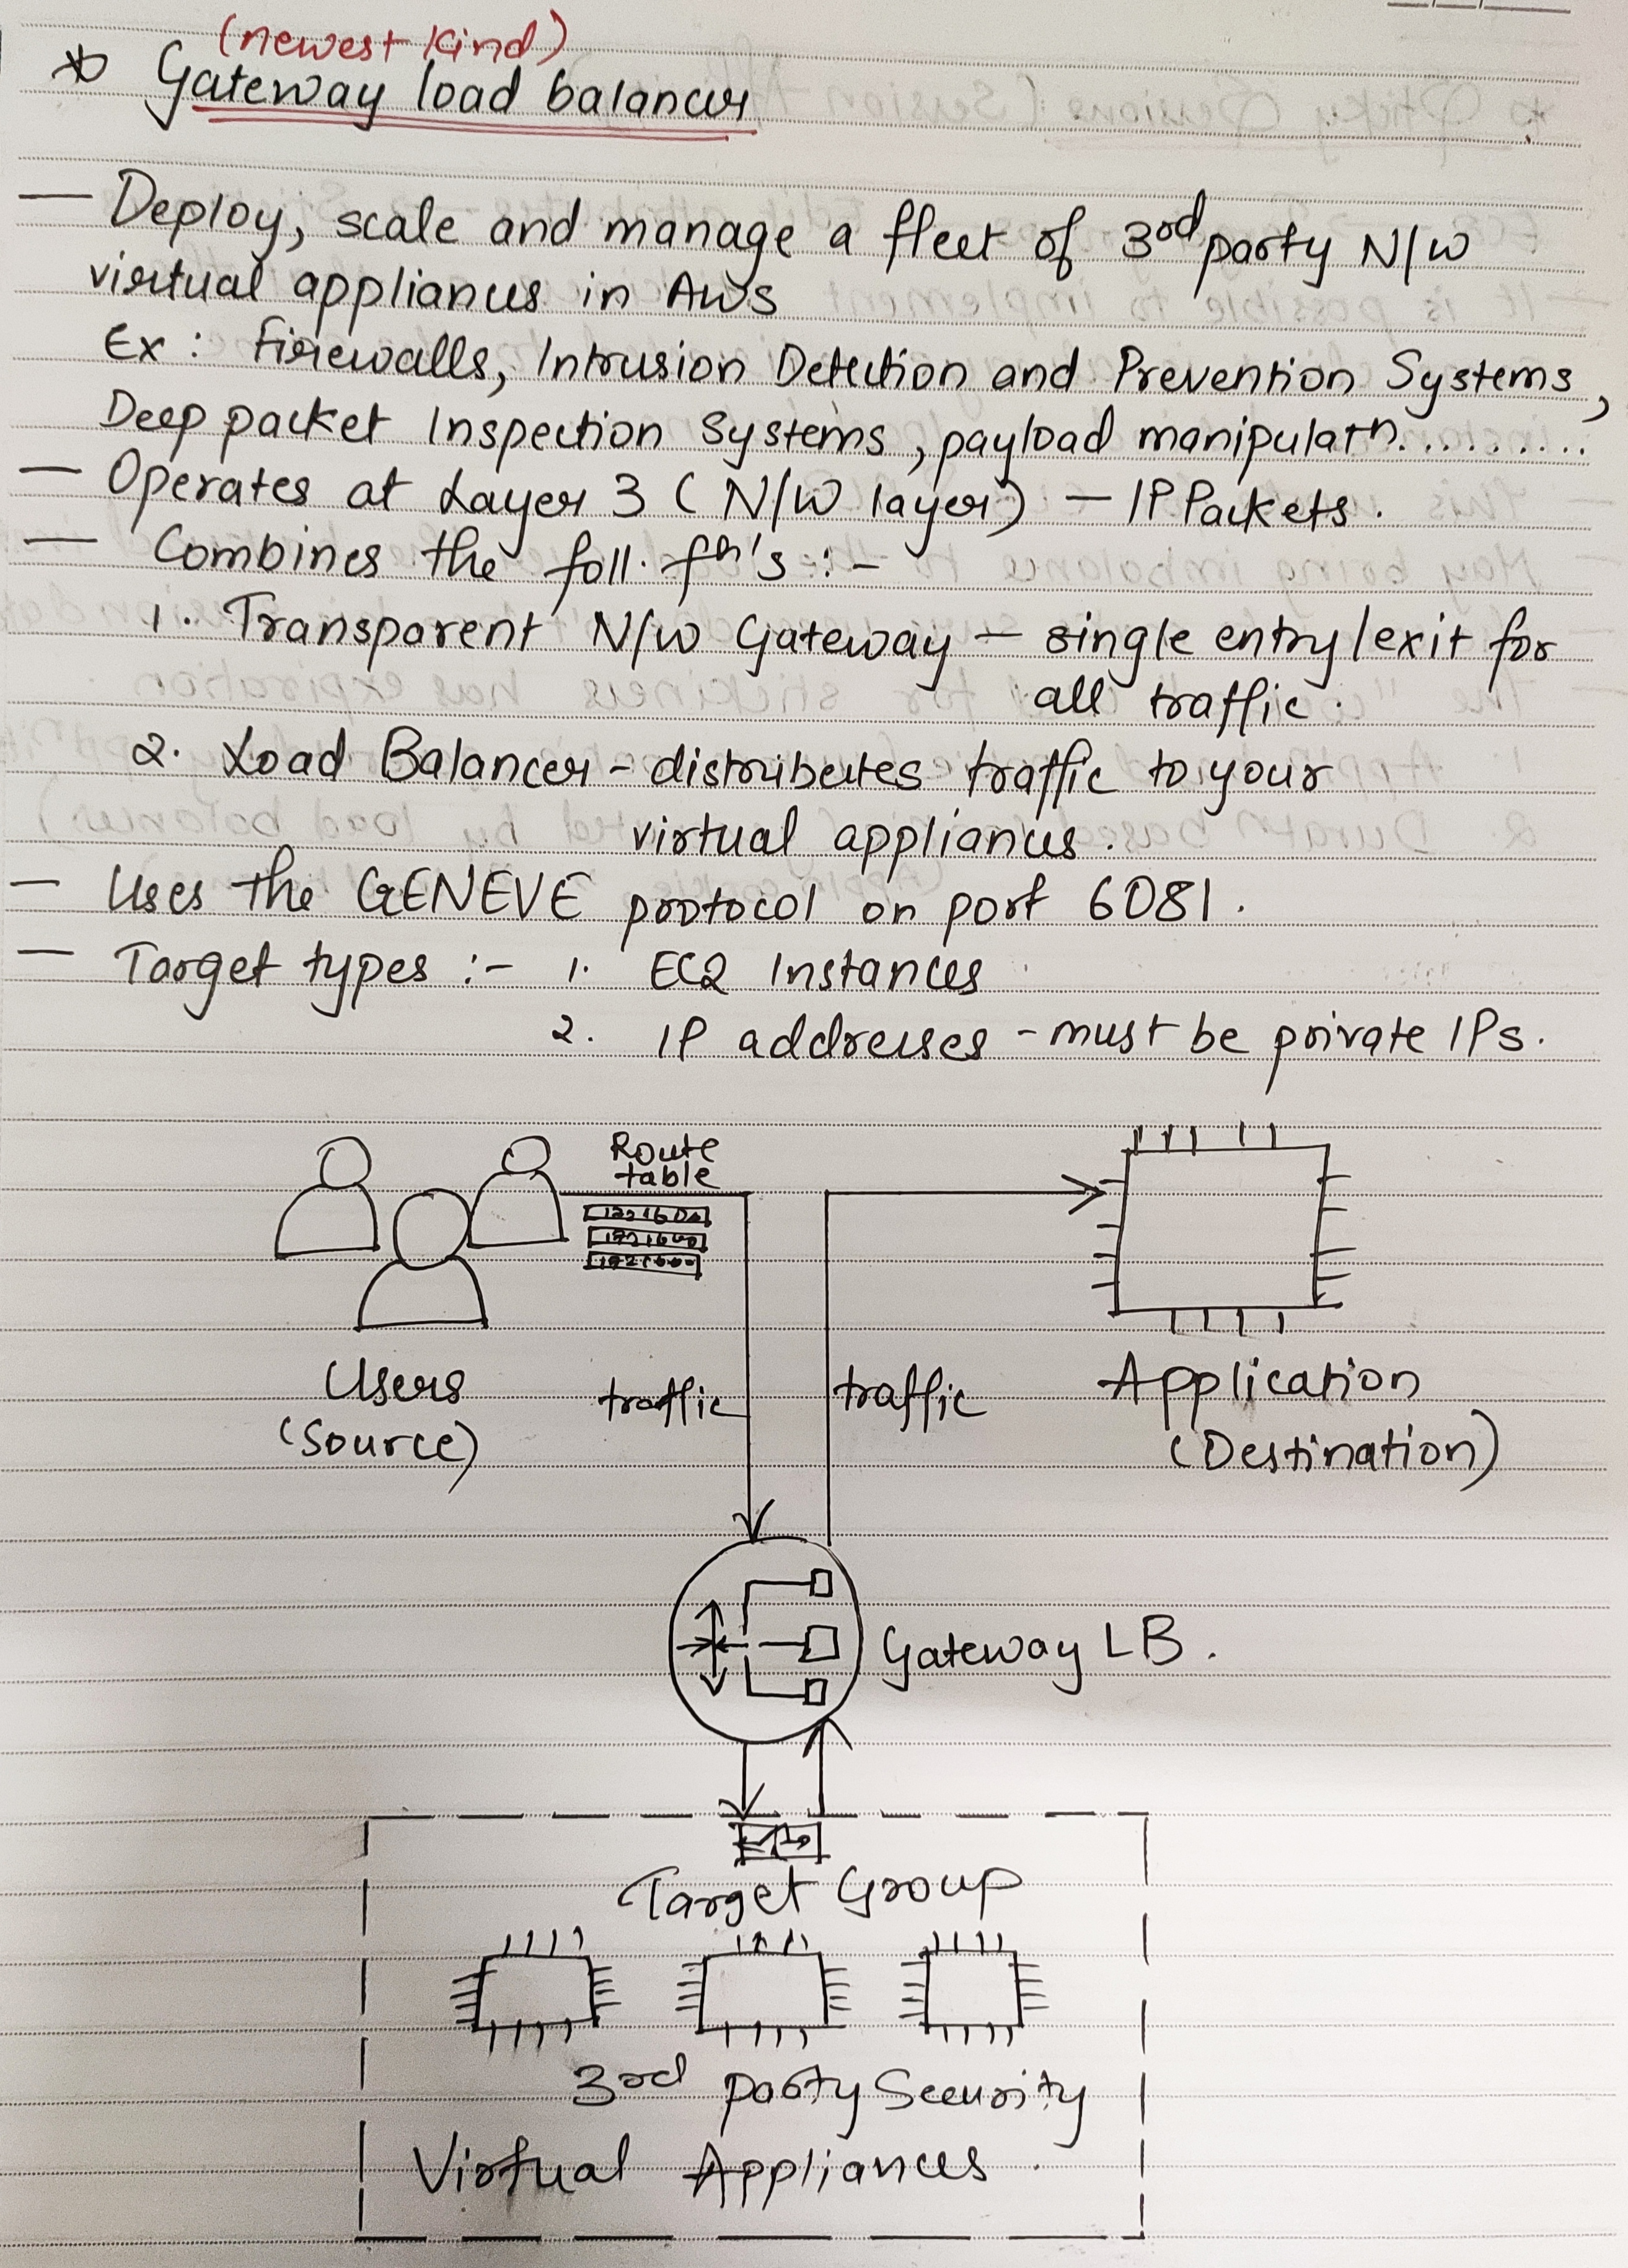 (newest kind)
* Gateway load balancer
— Deploy, scale and manage a fleet of 3rd party N/W
virtual appliances in AWS
Ex : Firewalls, Intrusion Detection and Prevention Systems,
Deep packet Inspection Systems, payload manipulatn.........
— Operates at Layer 3 (N/W layer) — IP Packets.
— Combines the foll. fn's :-
1. Transparent N/W Gateway — single entry/exit for
all traffic.
2. Load Balancer - distributes traffic to your
virtual appliances.
— Uses the GENEVE protocol on port 6081.
— Target types :- 1. EC2 Instances
2. IP addresses - must be private IPs.
Route
table
Users
(Source)
traffic
traffic
Application
(Destination)
Gateway LB.
Target Group
3rd party Security
Virtual Appliances.